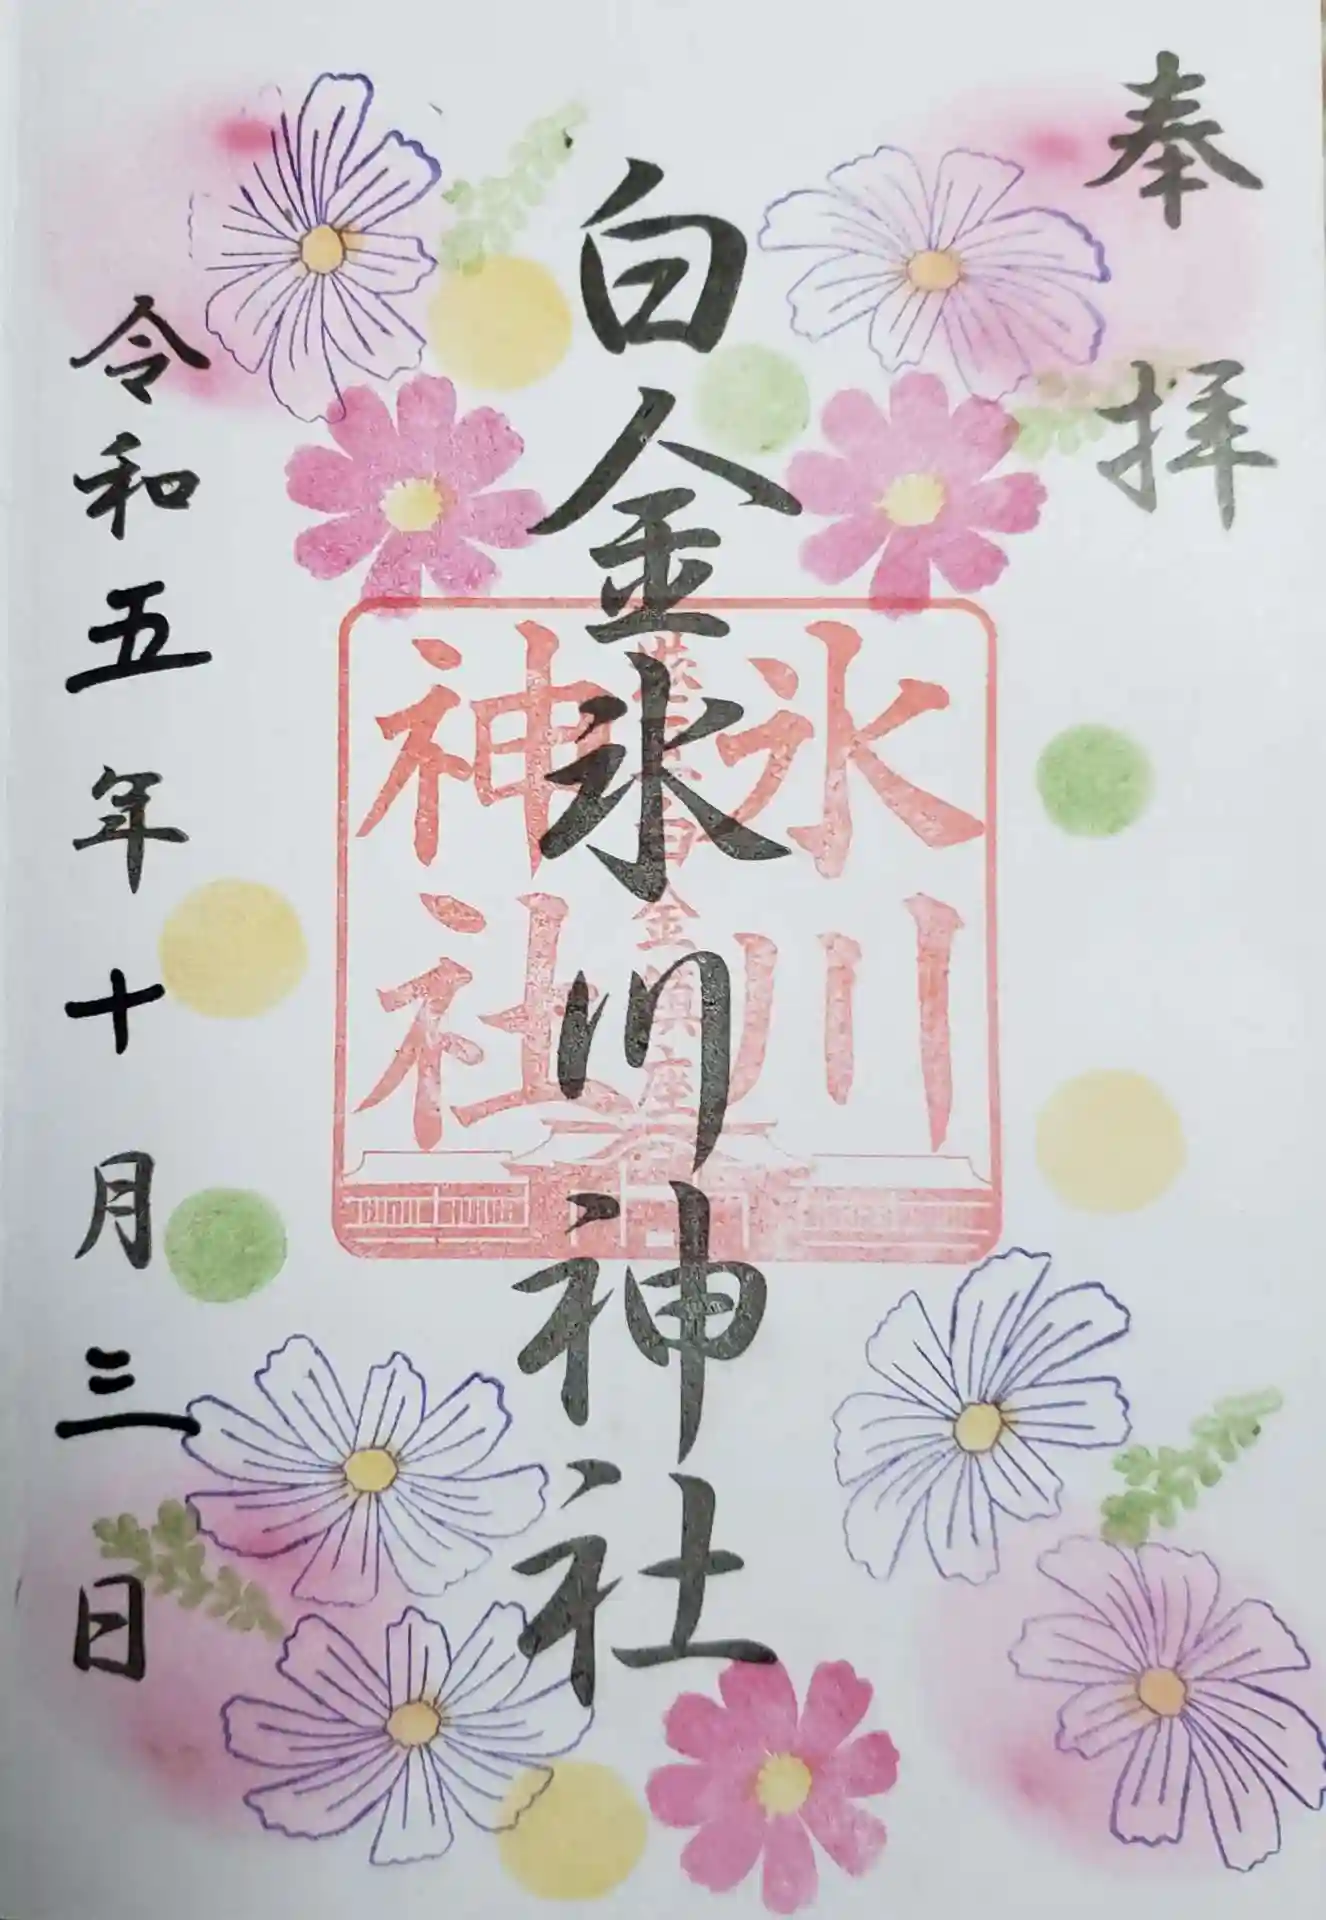 奉拝
白金氷川神社
氷川
神社
令和五年十月三日